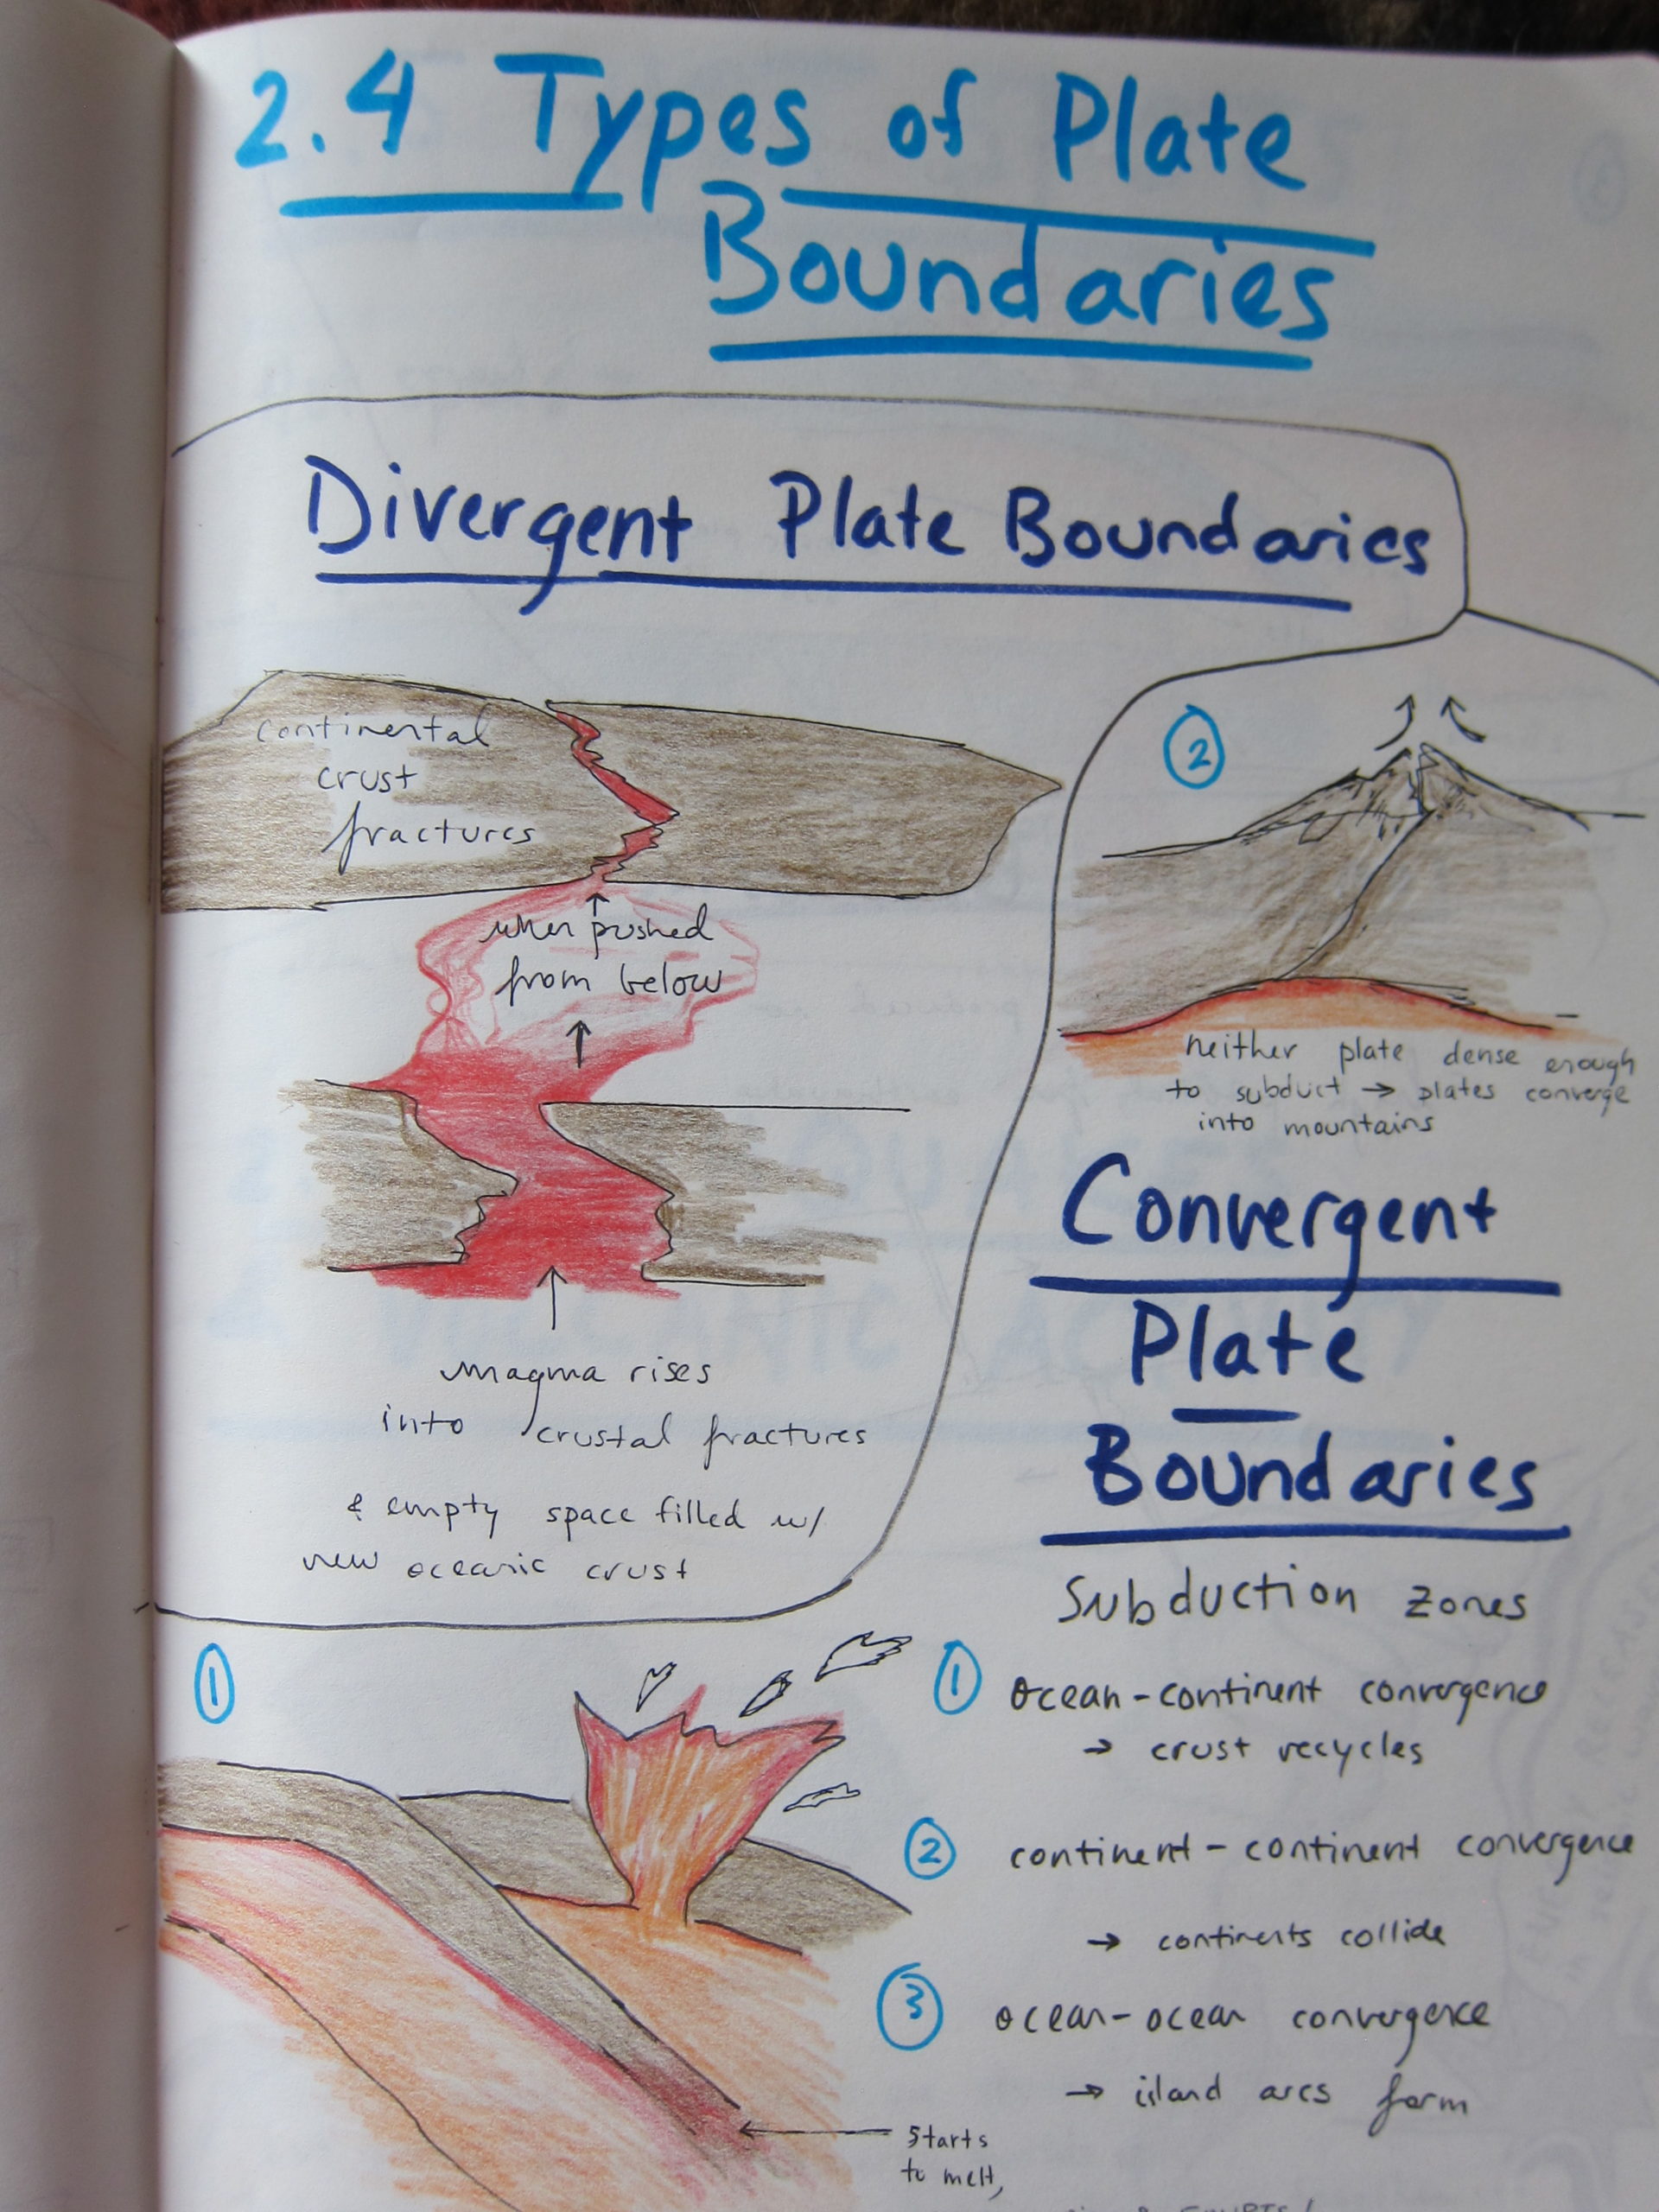 2.4 Types of Plate
Boundaries
Divergent Plate Boundaries
continental
crust
fractures
when pushed
from below
magma rises
into crustal fractures
& empty space filled w/
new oceanic crust
2
neither plate dense enough
to subduct → plates converge
into mountains
Convergent
Plate
Boundaries
Subduction zones
1 ocean-continent convergence
→ crust recycles
2 continent-continent convergence
→ continents collide
3 ocean-ocean convergence
→ island arcs form
1
starts
to melt,
ERUPTS!